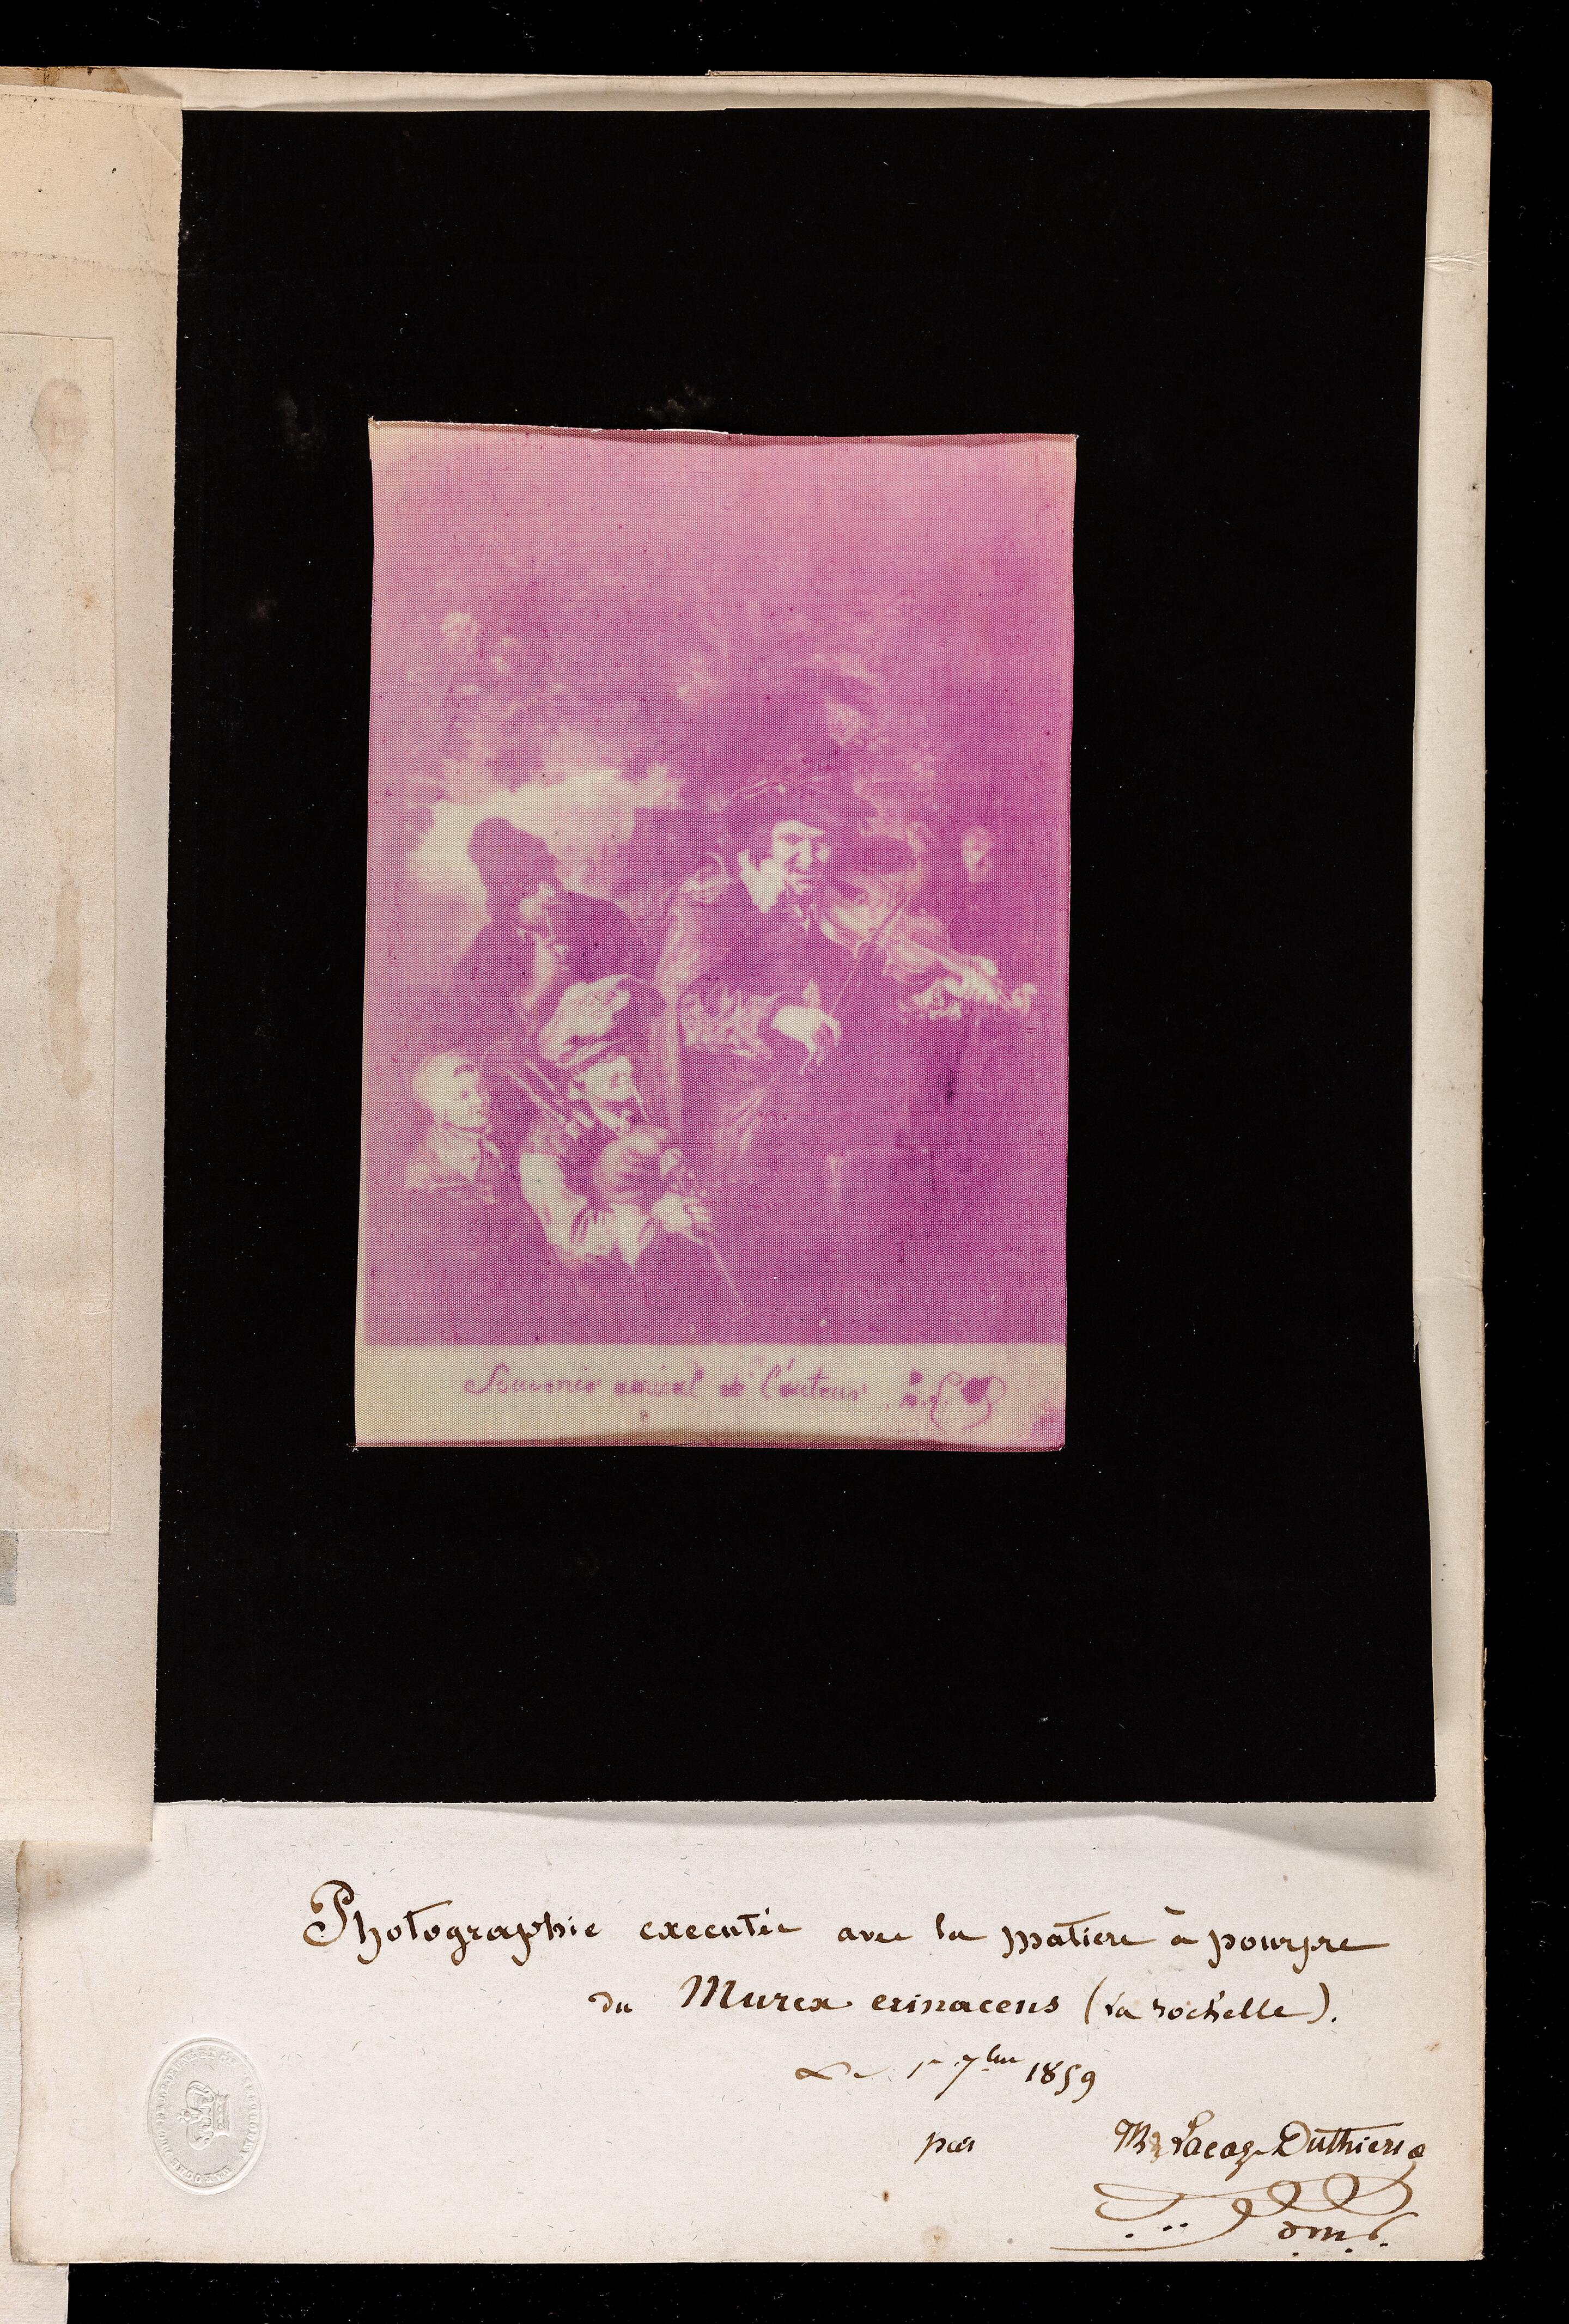 Souvenir amical de l'auteur
Photographie executée avec la matiere à pourpre
du Murex erinaceus (La rochelle).
Le 1er 7bre 1859
par H Lacaze Duthiers
d.m.p.